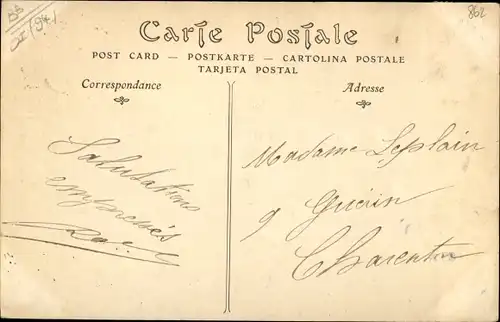 862
Carte Postale
POST CARD — POSTKARTE — CARTOLINA POSTALE
TARJETA POSTAL
Correspondance
Adresse
Salutations
empressés
Madame Leplain
9 Guérin
Charenton